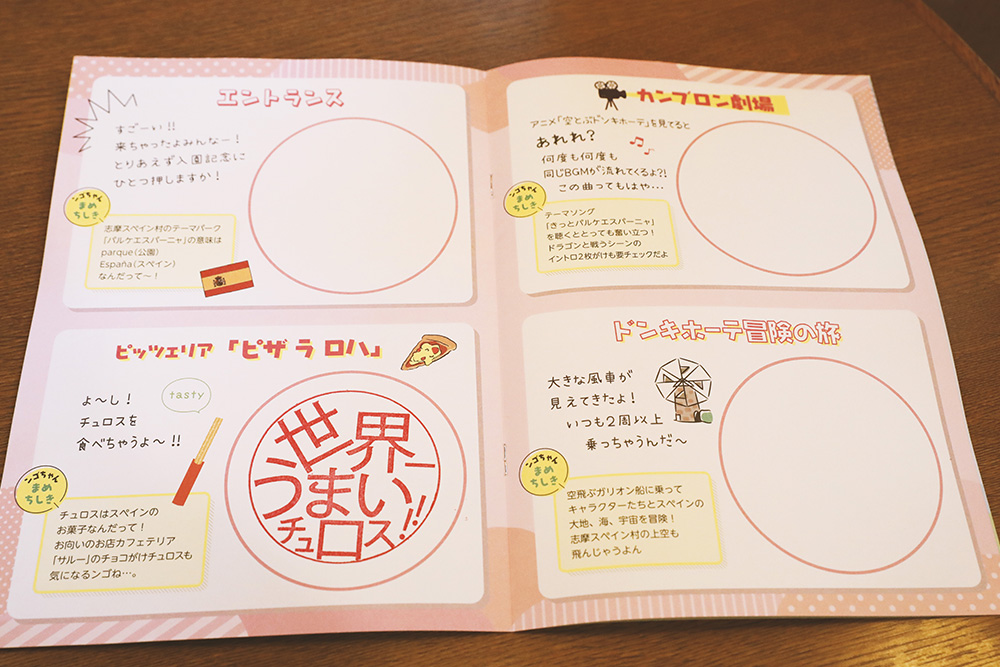 エントランス
すごーい!!
来ちゃったよみんなー!
とりあえず入園記念に
ひとつ押しますか!
ンゴちゃん
まめ
ちしき
志摩スペイン村のテーマパーク
「パルケエスパーニャ」の意味は
parque(公園)
España(スペイン)
なんだって〜!
ピッツェリア「ピザ ラ ロハ」
よ〜し!
チュロスを
食べちゃうよ〜!!
tasty
世界一
うまい
チュロス!!
ンゴちゃん
まめ
ちしき
チュロスはスペインの
お菓子なんだって!
お向いのお店カフェテリア
「サルー」のチョコがけチュロスも
気になるンゴね…。
カンブロン劇場
アニメ「空とぶドンキホーテ」を見てると
あれれ?
何度も何度も
同じBGMが流れてくるよ?!
この曲ってもはや…
ンゴちゃん
まめ
ちしき
テーマソング
「きっとパルケエスパーニャ」
を聴くととっても奮い立つ!
ドラゴンと戦うシーンの
イントロ2枚がけも要チェックだよ
ドンキホーテ冒険の旅
大きな風車が
見えてきたよ!
いつも2周以上
乗っちゃうんだ〜
ンゴちゃん
まめ
ちしき
空飛ぶガリオン船に乗って
キャラクターたちとスペインの
大地、海、宇宙を冒険!
志摩スペイン村の上空も
飛んじゃうよん